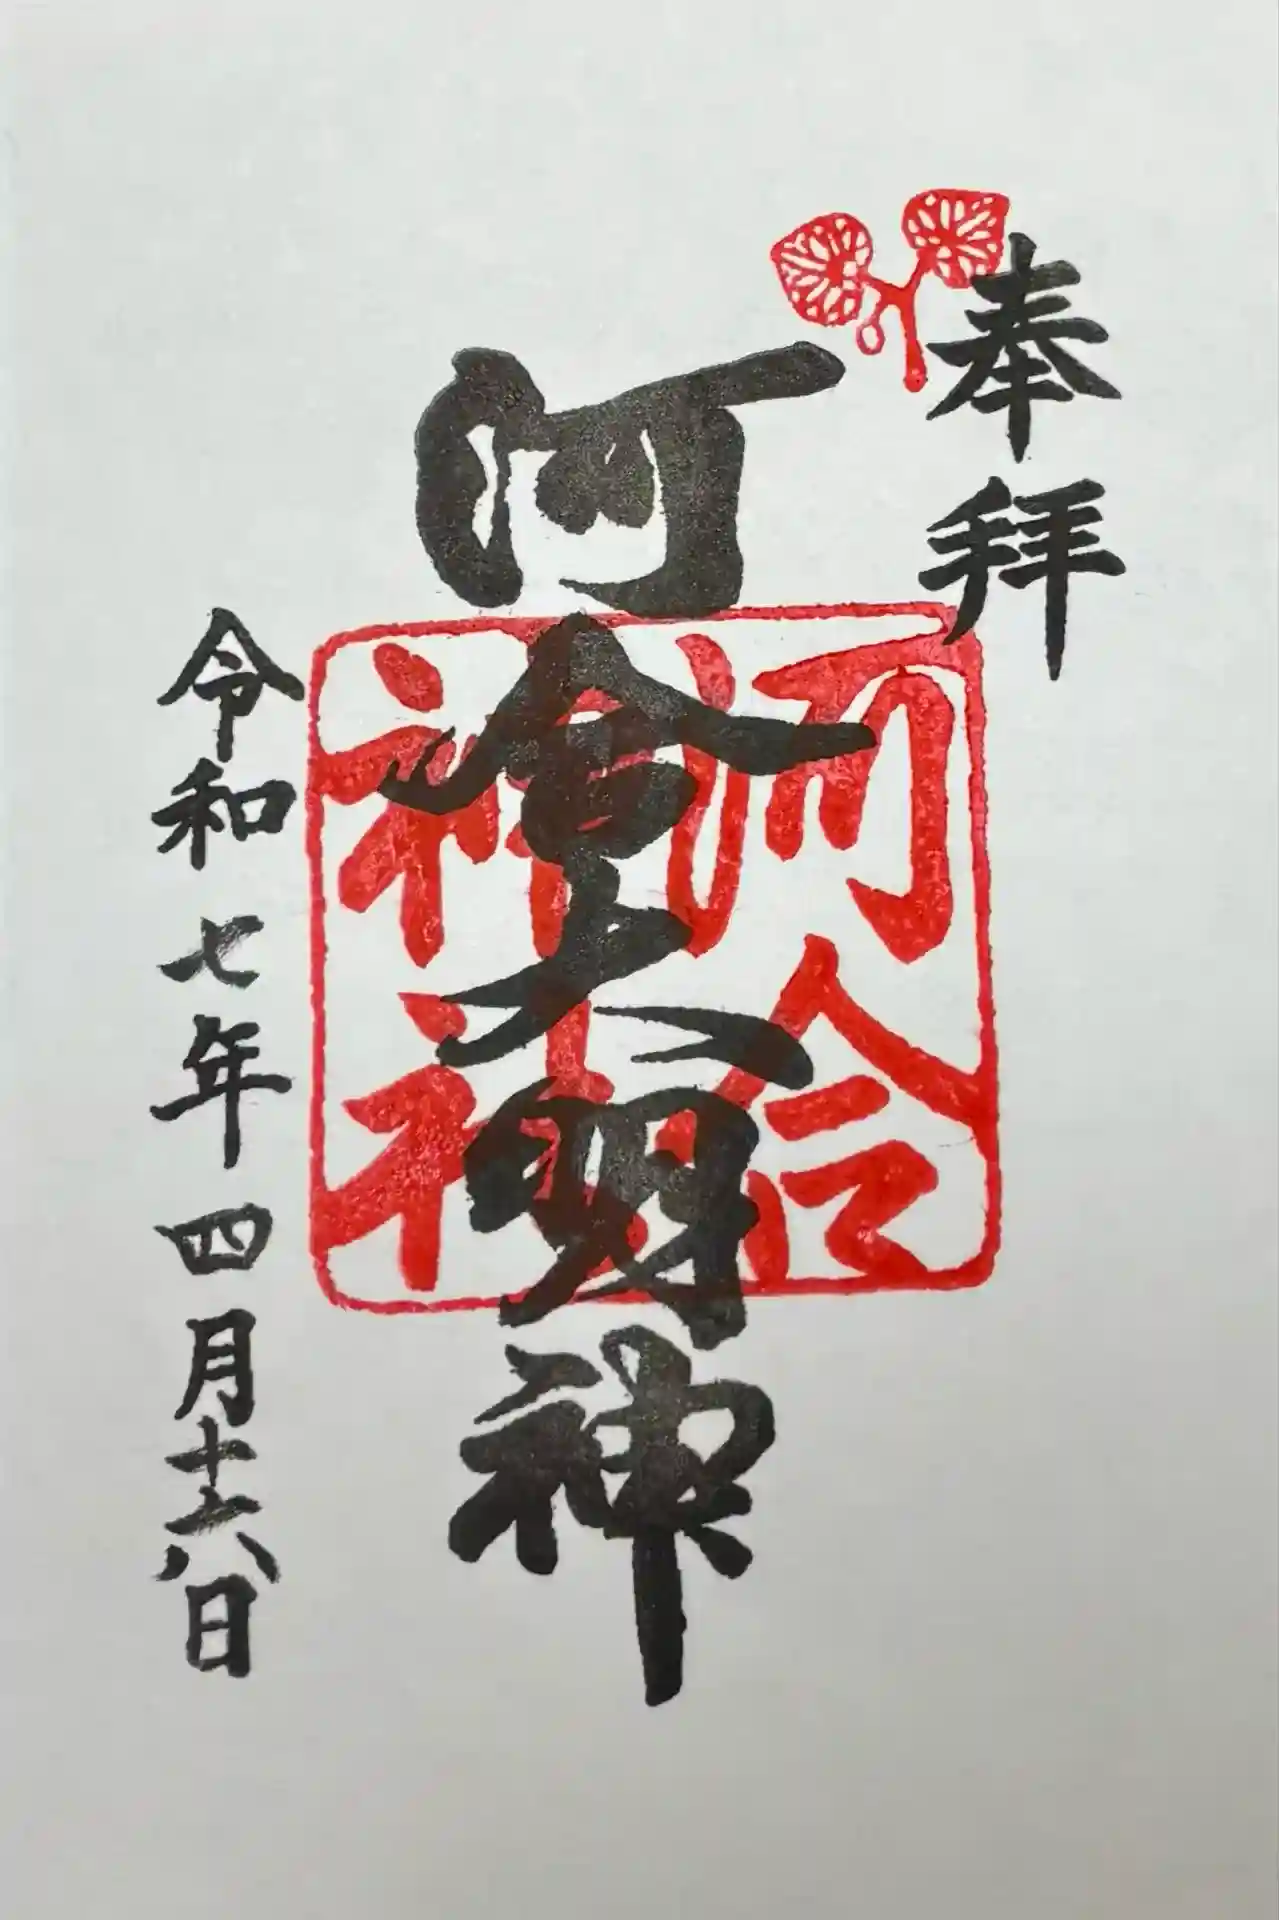 奉拝
河會大明神
河合
神社
令和七年四月十六日